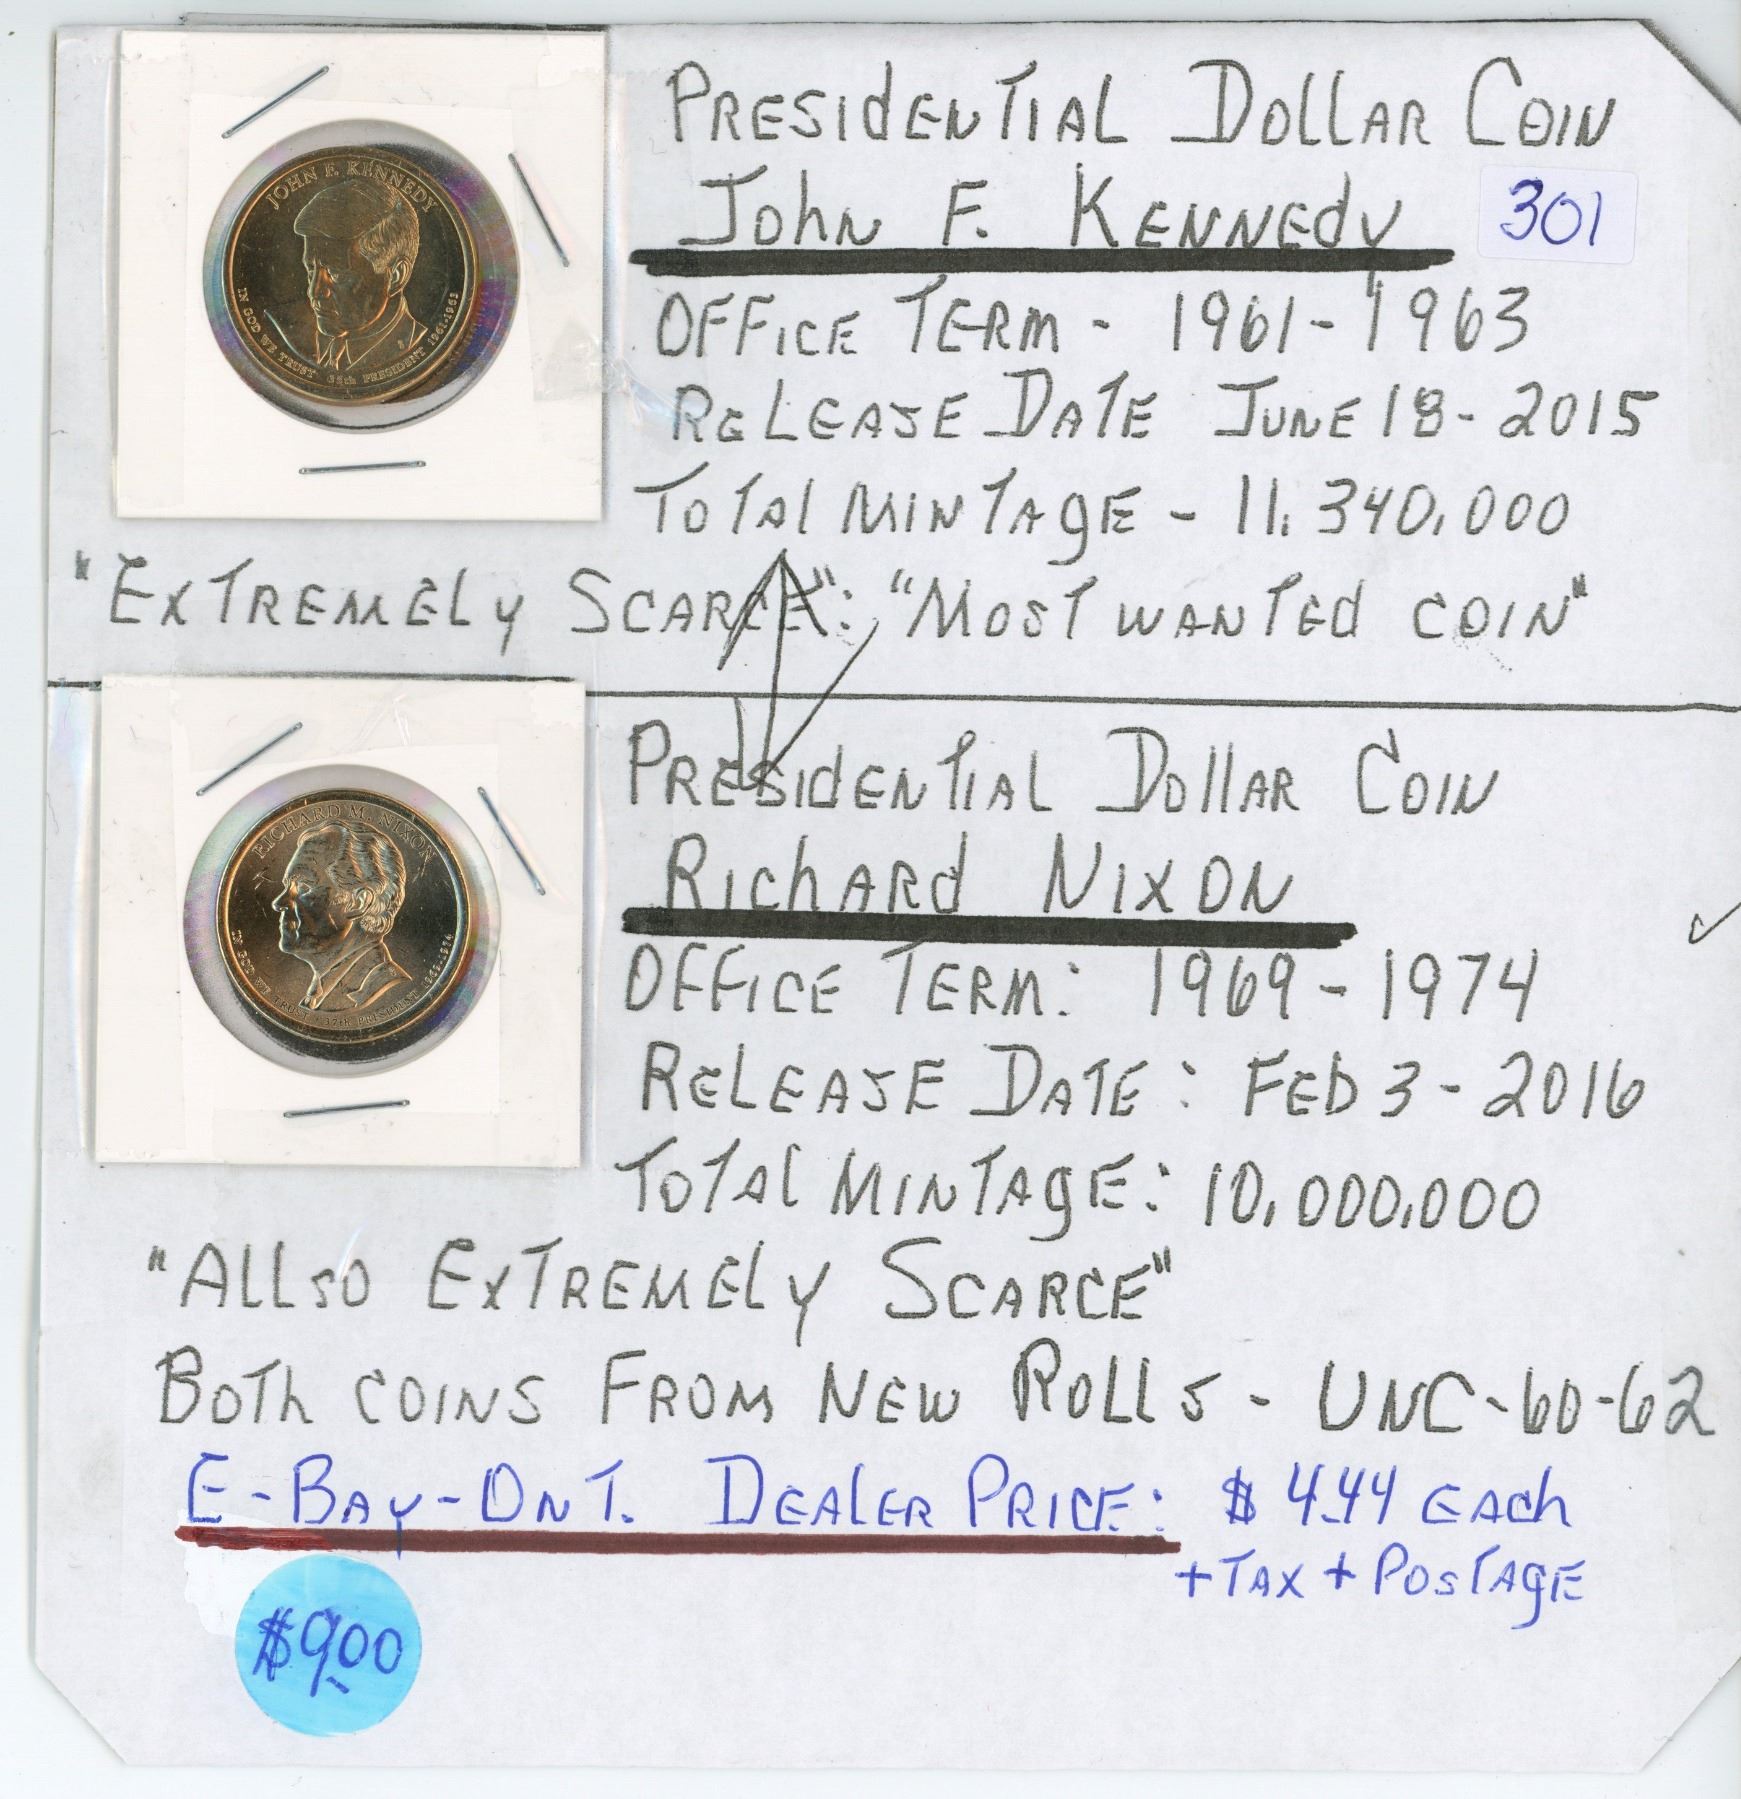 JOHN F. KENNEDY
IN GOD WE TRUST 35th PRESIDENT 1961-1963
PRESIDENTIAL DOLLAR COIN
JOHN F. KENNEDY
301
OFFICE TERM - 1961-1963
RELEASE DATE JUNE 18-2015
TOTAL MINTAGE - 11,340,000
"EXTREMELY SCARCE": "MOST WANTED COIN"
RICHARD M. NIXON
IN GOD WE TRUST 37th PRESIDENT 1969-1974
PRESIDENTIAL DOLLAR COIN
RICHARD NIXON
OFFICE TERM: 1969-1974
RELEASE DATE: FEB 3-2016
TOTAL MINTAGE: 10,000,000
"ALLSO EXTREMELY SCARCE"
BOTH COINS FROM NEW ROLLS - UNC-60-62
E-BAY-ONT. DEALER PRICE: $4.44 EACH
+TAX + POSTAGE
$9.00